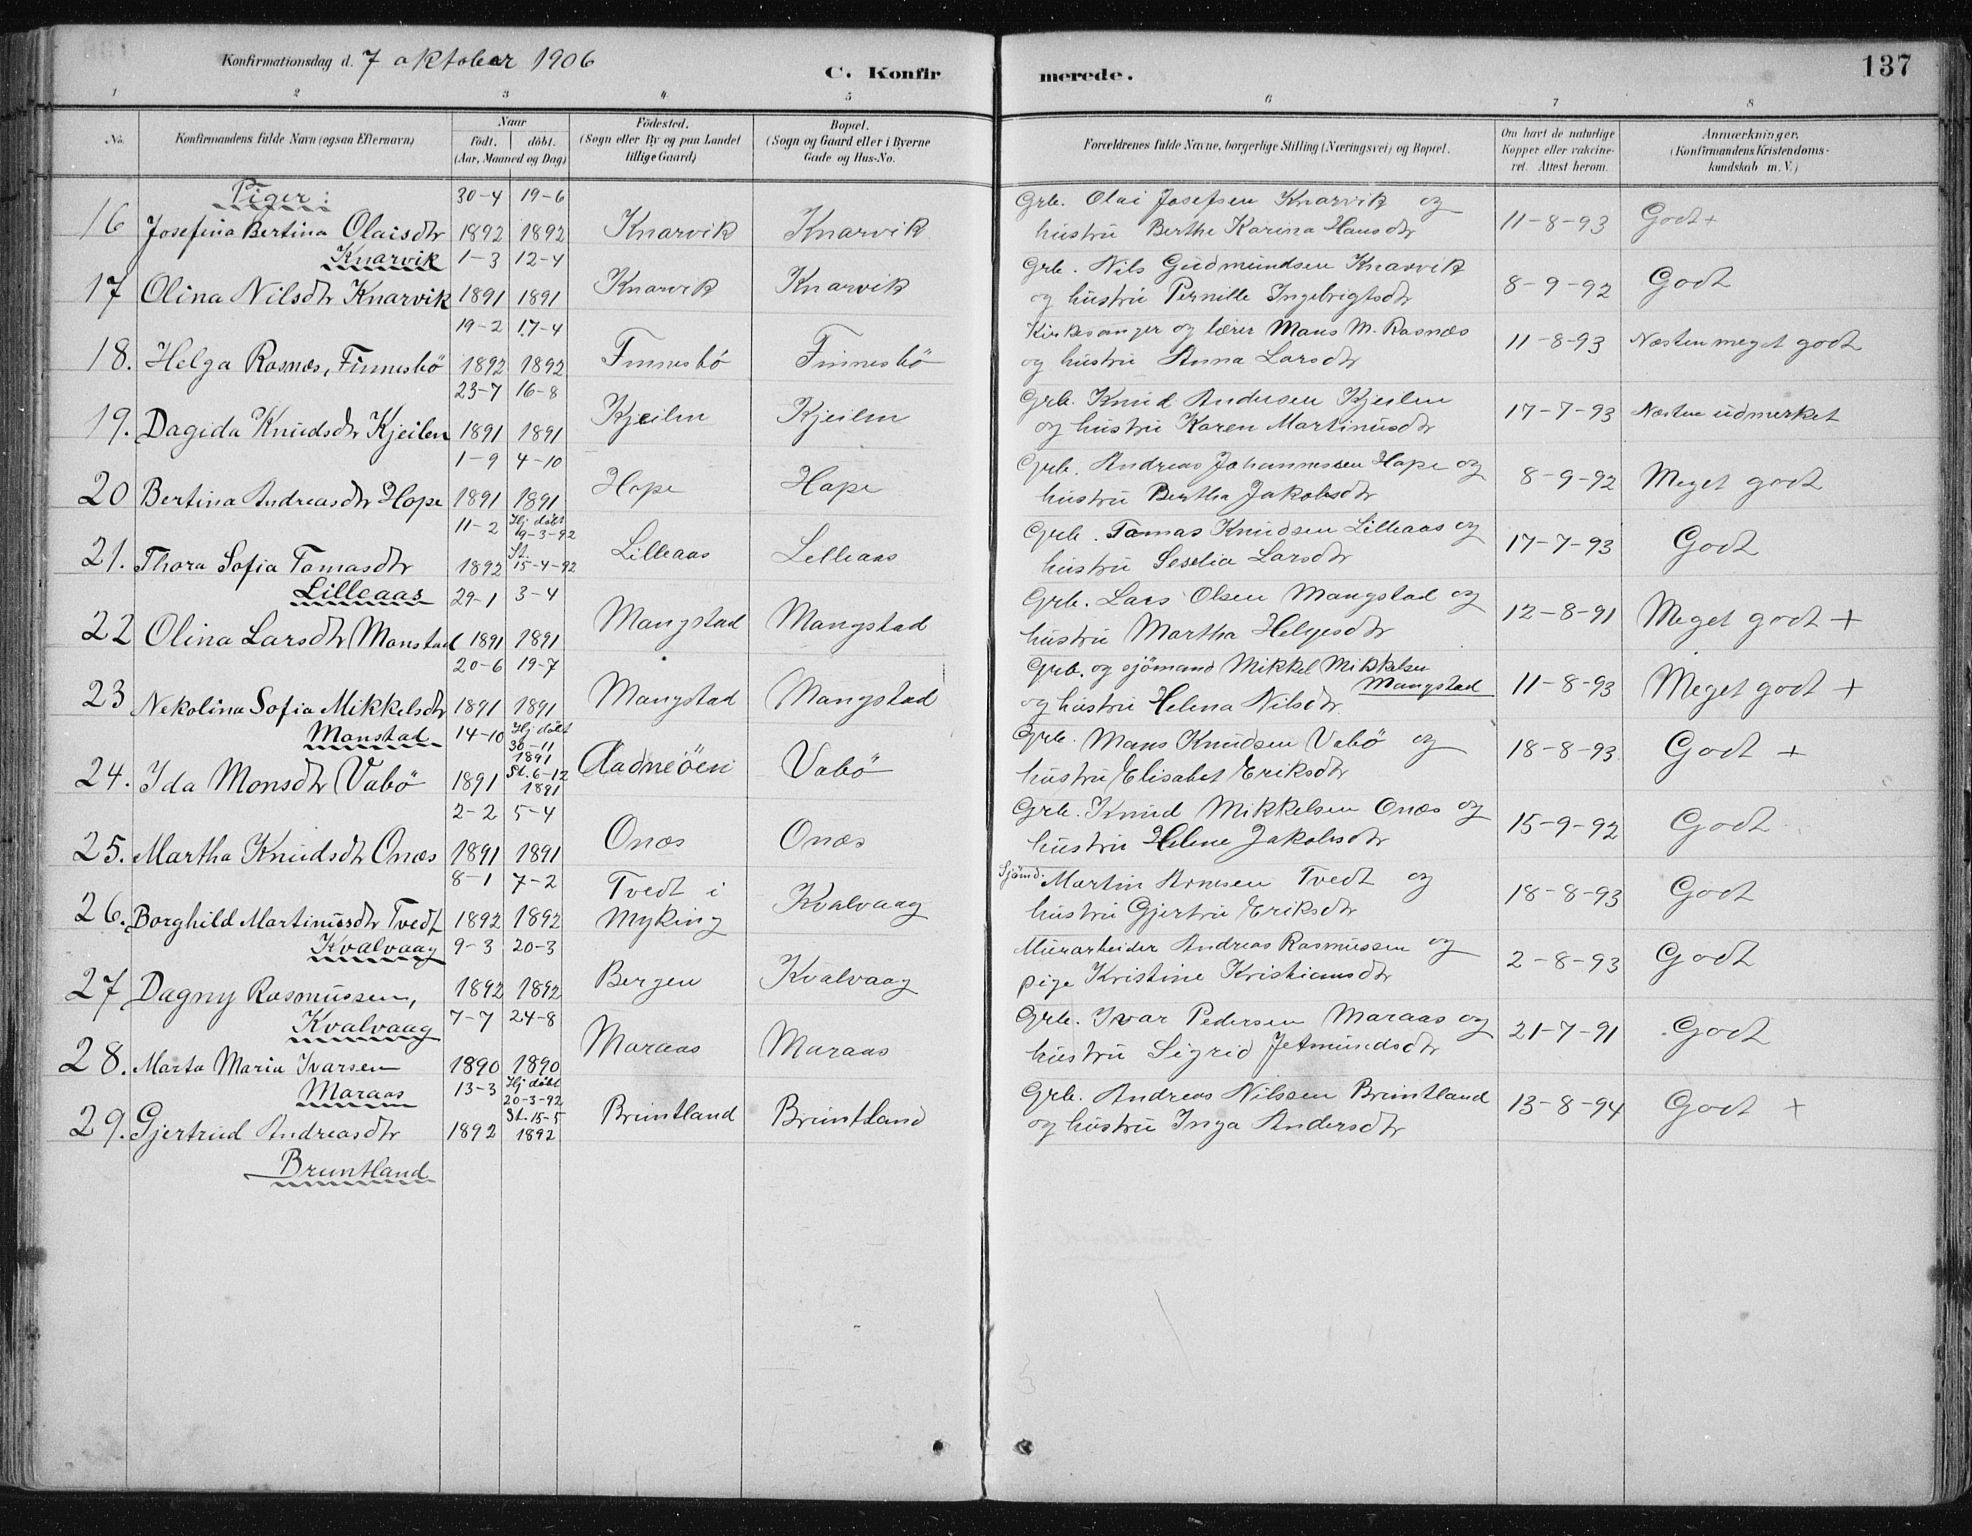 Konfirmationsdag d. 7 oktober 1906
C. Konfirmerede.
137
1 2 3 4 5 6 7 8
No.
Konfirmandens fulde Navn (ogsaa Efternavn)
Naar
Født. | døbt.
(Aar, Maaned og Dag)
Fødested.
(Sogn eller By og paa Landet
tillige Gaard)
Bopæl.
(Sogn og Gaard eller i Byerne
Gade og Hus-No.
Forældrenes fulde Navne, borgerlige Stilling (Næringsvei) og Bopæl.
Om havt de naturlige
Kopper eller vakcine-
ret. Attest herom.
Anmærkninger.
(Konfirmandens Kristendoms-
kundskab m. V.)
Piger:
30-4 19-6 Grb. Olai Josefsen Knarvik og
16 Josefina Bertina Olaisdtr 1892 1892 Knarvik Knarvik hustru Berthe Karina Hansdtr 11-8-93 Godt +
Knarvik
1-3 12-4 Grb. Nils Gudmundsen Knarvik
17 Olina Nilsdtr Knarvik 1891 1891 Knarvik Knarvik og hustru Pernille Ingebrigtsdtr 8-9-92 Godt
19-2 17-4 Kirkesanger og lærer Mons M. Rasnæs
18. Helga Rasnæs, Finnesbö 1892 1892 Finnesbö Finnesbö og hustru Anna Larsdtr 11-8-93 Næsten meget godt
23-7 16-8 Grb. Knud Andersen Kjeilen
19. Dagida Knudsdtr Kjeilen 1891 1891 Kjeilen Kjeilen og hustru Karen Martinusdtr 17-7-93 Næsten udmerket
1-9 4-10 Grb. Andreas Johannessen Hope og
20 Bertina Andreasdtr Hope 1891 1891 Hope Hope hustru Bertha Jakobsdtr 8-9-92 Meget godt
11-2 Hj döbt 9-3-92 Grb. Tomas Knudsen Lilleaas og
21. Thora Sofia Tomasdtr 1892 St. 15-4-92 Lilleaas Lilleaas hustru Seselia Larsdtr 17-7-93 Godt
Lilleaas
29-1 3-4 Grb. Lars Olsen Mangstad og
22 Olina Larsdtr Monstad 1891 1891 Mangstad Mangstad hustru Martha Helgesdtr 12-8-91 Meget godt +
20-6 19-7 Grb. og sjömand Mikkel Mikkelsen Mangstad
23 Nekolina Sofia Mikkelsdtr 1891 1891 Mangstad Mangstad og hustru Helena Nilsdtr 11-8-93 Meget godt +
Monstad
14-10 Hj döbt 30-11 1891 Grb. Mons Knudsen Vabö og
24. Ida Monsdtr Vabö 1891 St. 6-12 1891 Aadneöen Vabö hustru Elisabet Eriksdtr 18-8-93 Godt +
2-2 5-4 Grb. Knud Mikkelsen Onæs og
25. Martha Knudsdtr Onæs 1891 1891 Onæs Onæs hustru Helene Jakobsdtr 15-9-92 Godt
8-1 7-2 Tvedt i Sjömd. Martin Arnesen Tvedt og
26. Borghild Martinusdtr Tvedt 1892 1892 Myking Kvalvaag hustru Gjertru Eriksdtr 18-8-93 Godt
Kvalvaag
9-3 20-3 Murarbeider Andreas Rasmussen og
27 Dagny Rasmussen, 1892 1892 Bergen Kvalvaag pige Kristine Kristiansdtr 2-8-93 Godt
Kvalvaag
7-7 24-8 Grb. Ivar Pedersen Maraas og
28. Marta Maria Ivarsen 1890 1890 Maraas Maraas hustru Sigrid Jetmundsdtr 21-7-91 Godt
Maraas
13-3 Hj döbt 20-3-92 Grb. Andreas Nilssen Bruntland
29. Gjertrud Andreasdtr 1892 St. 15-5 1892 Bruntland Bruntland og hustru Inga Andersdtr 13-8-94 Godt +
Bruntland